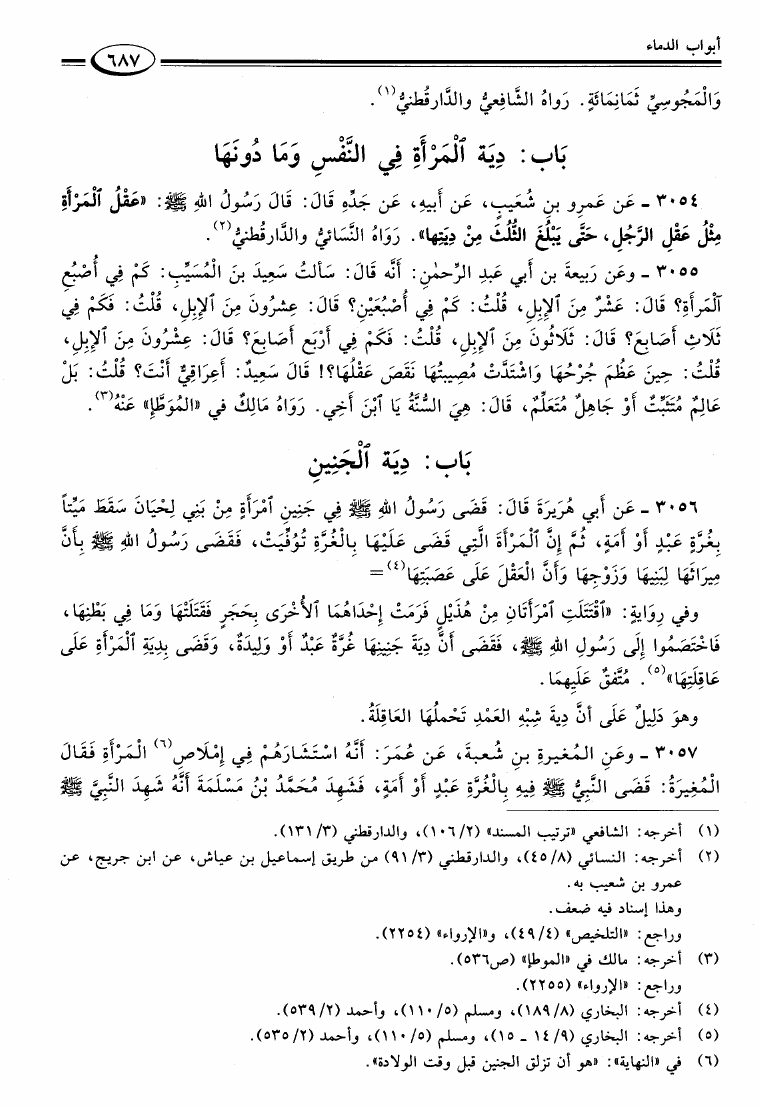 أبواب الدماء
٦٨٧
وَالْمَجُوسِيِّ ثَمَانِمَائَةٍ. رَوَاهُ الشَّافعِيُّ والدَّارقُطنيُّ(١).
بَاب: دِيَة ٱلْمَرْأَةِ فِي النَّفْسِ وَمَا دُونَهَا
٣٠٥٤ ـ عَن عَمرِو بنِ شُعَيبٍ، عَن أَبيهِ، عَن جَدِّهِ قَالَ: قَالَ رَسُولُ اللهِ ﷺ: «عَقْلُ ٱلْمَرْأَةِ
مِثْلُ عَقْلِ الرَّجُلِ، حَتَّى يَبْلُغَ الثُّلُثَ مِنْ دِيَتِها». رَوَاهُ النَّسَائيُّ والدَّارقُطنيُّ(٢).
٣٠٥٥ ـ وعَن رَبيعةَ بنِ أَبي عَبدِ الرَّحمٰنِ: أنَّه قَالَ: سَألتُ سَعِيدَ بنَ الْمُسَيِّبِ: كَمْ فِي أُصْبُعِ
ٱلْمَرأَةِ؟ قَالَ: عَشْرٌ مِنَ الإِبِلِ، قُلْتُ: كَمْ فِي أُصْبُعَيْنِ؟ قَالَ: عِشْرُونَ مِنَ الإِبِلِ، قُلْتُ: فَكَمْ فِي
ثَلَاثِ أَصَابعَ؟ قَالَ: ثَلَاثُونَ مِنَ الإِبِلِ، قُلْتُ: فَكَمْ فِي أَرْبَعِ أَصَابعَ؟ قَالَ: عِشْرُونَ مِنَ الإِبِلِ،
قُلْتُ: حِينَ عَظُمَ جُرْحُهَا وَاشْتَدَّتْ مُصِيبتُهَا نَقَصَ عَقْلُهَا؟! قَالَ سَعِيدٌ: أَعِرَاقِيٌّ أَنْتَ؟ قُلْتُ: بَلْ
عَالِمٌ مُتَثَبِّتٌ أَوْ جَاهِلٌ مُتَعَلِّمٌ، قَالَ: هِيَ السُّنَّةُ يَا ٱبْنَ أَخِي. رَوَاهُ مَالِكٌ في «المُوَطَّإِ» عَنْهُ(٣).
بَاب: دِيَة ٱلْجَنِينِ
٣٠٥٦ ـ عَن أَبي هُرَيرَةَ قَالَ: قَضَى رَسُولُ اللهِ ﷺ فِي جَنِينِ ٱمْرَأَةٍ مِنْ بَنِي لِحْيَانَ سَقَطَ مَيِّتاً
بِغُرَّةٍ عَبْدٍ أَوْ أَمَةٍ، ثُمَّ إِنَّ ٱلْمَرْأَةَ الَّتِي قَضَى عَلَيْهَا بِالْغُرَّةِ تُوُفِّيَتْ، فَقَضَى رَسُولُ اللهِ ﷺ بِأَنَّ
مِيرَاثَهَا لِبَنِيهَا وَزَوْجِهَا وَأَنَّ الْعَقْلَ عَلَى عَصَبَتِهَا(٤)=
وفي رِوَايةٍ: «ٱقْتَتَلَتِ ٱمْرَأَتَانِ مِنْ هُذَيْلٍ فَرَمَتْ إِحْدَاهُمَا ٱلأُخْرَى بِحَجَرٍ فَقَتَلَتْهَا وَمَا فِي بَطْنِهَا،
فَاخْتَصَمُوا إِلَى رَسُولِ اللهِ ﷺ، فَقَضَى أَنَّ دِيَةَ جَنِينِهَا غُرَّةٌ عَبْدٌ أَوْ وَلِيدَةٌ، وَقَضَى بِدِيَةِ ٱلْمَرْأَةِ عَلَى
عَاقِلَتِهَا»(٥). مُتَّفقٌ عَلَيهِمَا.
وهوَ دَلِيلٌ عَلى أنَّ دِيةَ شِبْهِ العَمْدِ تَحْملُهَا العَاقِلَةُ.
٣٠٥٧ ـ وعَنِ المُغيرةِ بنِ شُعبةَ، عَن عُمَرَ: أَنَّهُ اسْتَشَارَهُمْ فِي إِمْلَاصِ(٦) الْمَرْأَةِ فَقَالَ
الْمُغِيرَةُ: قَضَى النَّبِيُّ ﷺ فِيهِ بِالْغُرَّةِ عَبْدٍ أَوْ أَمَةٍ، فَشَهِدَ مُحَمَّدُ بْنُ مَسْلَمَةَ أَنَّهُ شَهِدَ النَّبِيَّ ﷺ
(١) أخرجه: الشافعي «ترتيب المسند» (١٠٦/٢)، والدارقطني (١٣١/٣).
(٢) أخرجه: النسائي (٤٥/٨)، والدارقطني (٩١/٣) من طريق إسماعيل بن عياش، عن ابن جريج، عن
عمرو بن شعيب به.
وهذا إسناد فيه ضعف.
وراجع: «التلخيص» (٤٩/٤)، و«الإرواء» (٢٢٥٤).
(٣) أخرجه: مالك في «الموطإ» (ص٥٣٦).
وراجع: «الإرواء» (٢٢٥٥).
(٤) أخرجه: البخاري (١٨٩/٨)، ومسلم (١١٠/٥)، وأحمد (٥٣٩/٢).
(٥) أخرجه: البخاري (١٤/٩ ـ ١٥)، ومسلم (١١٠/٥)، وأحمد (٥٣٥/٢).
(٦) في «النهاية»: «هو أن تزلق الجنين قبل وقت الولادة».